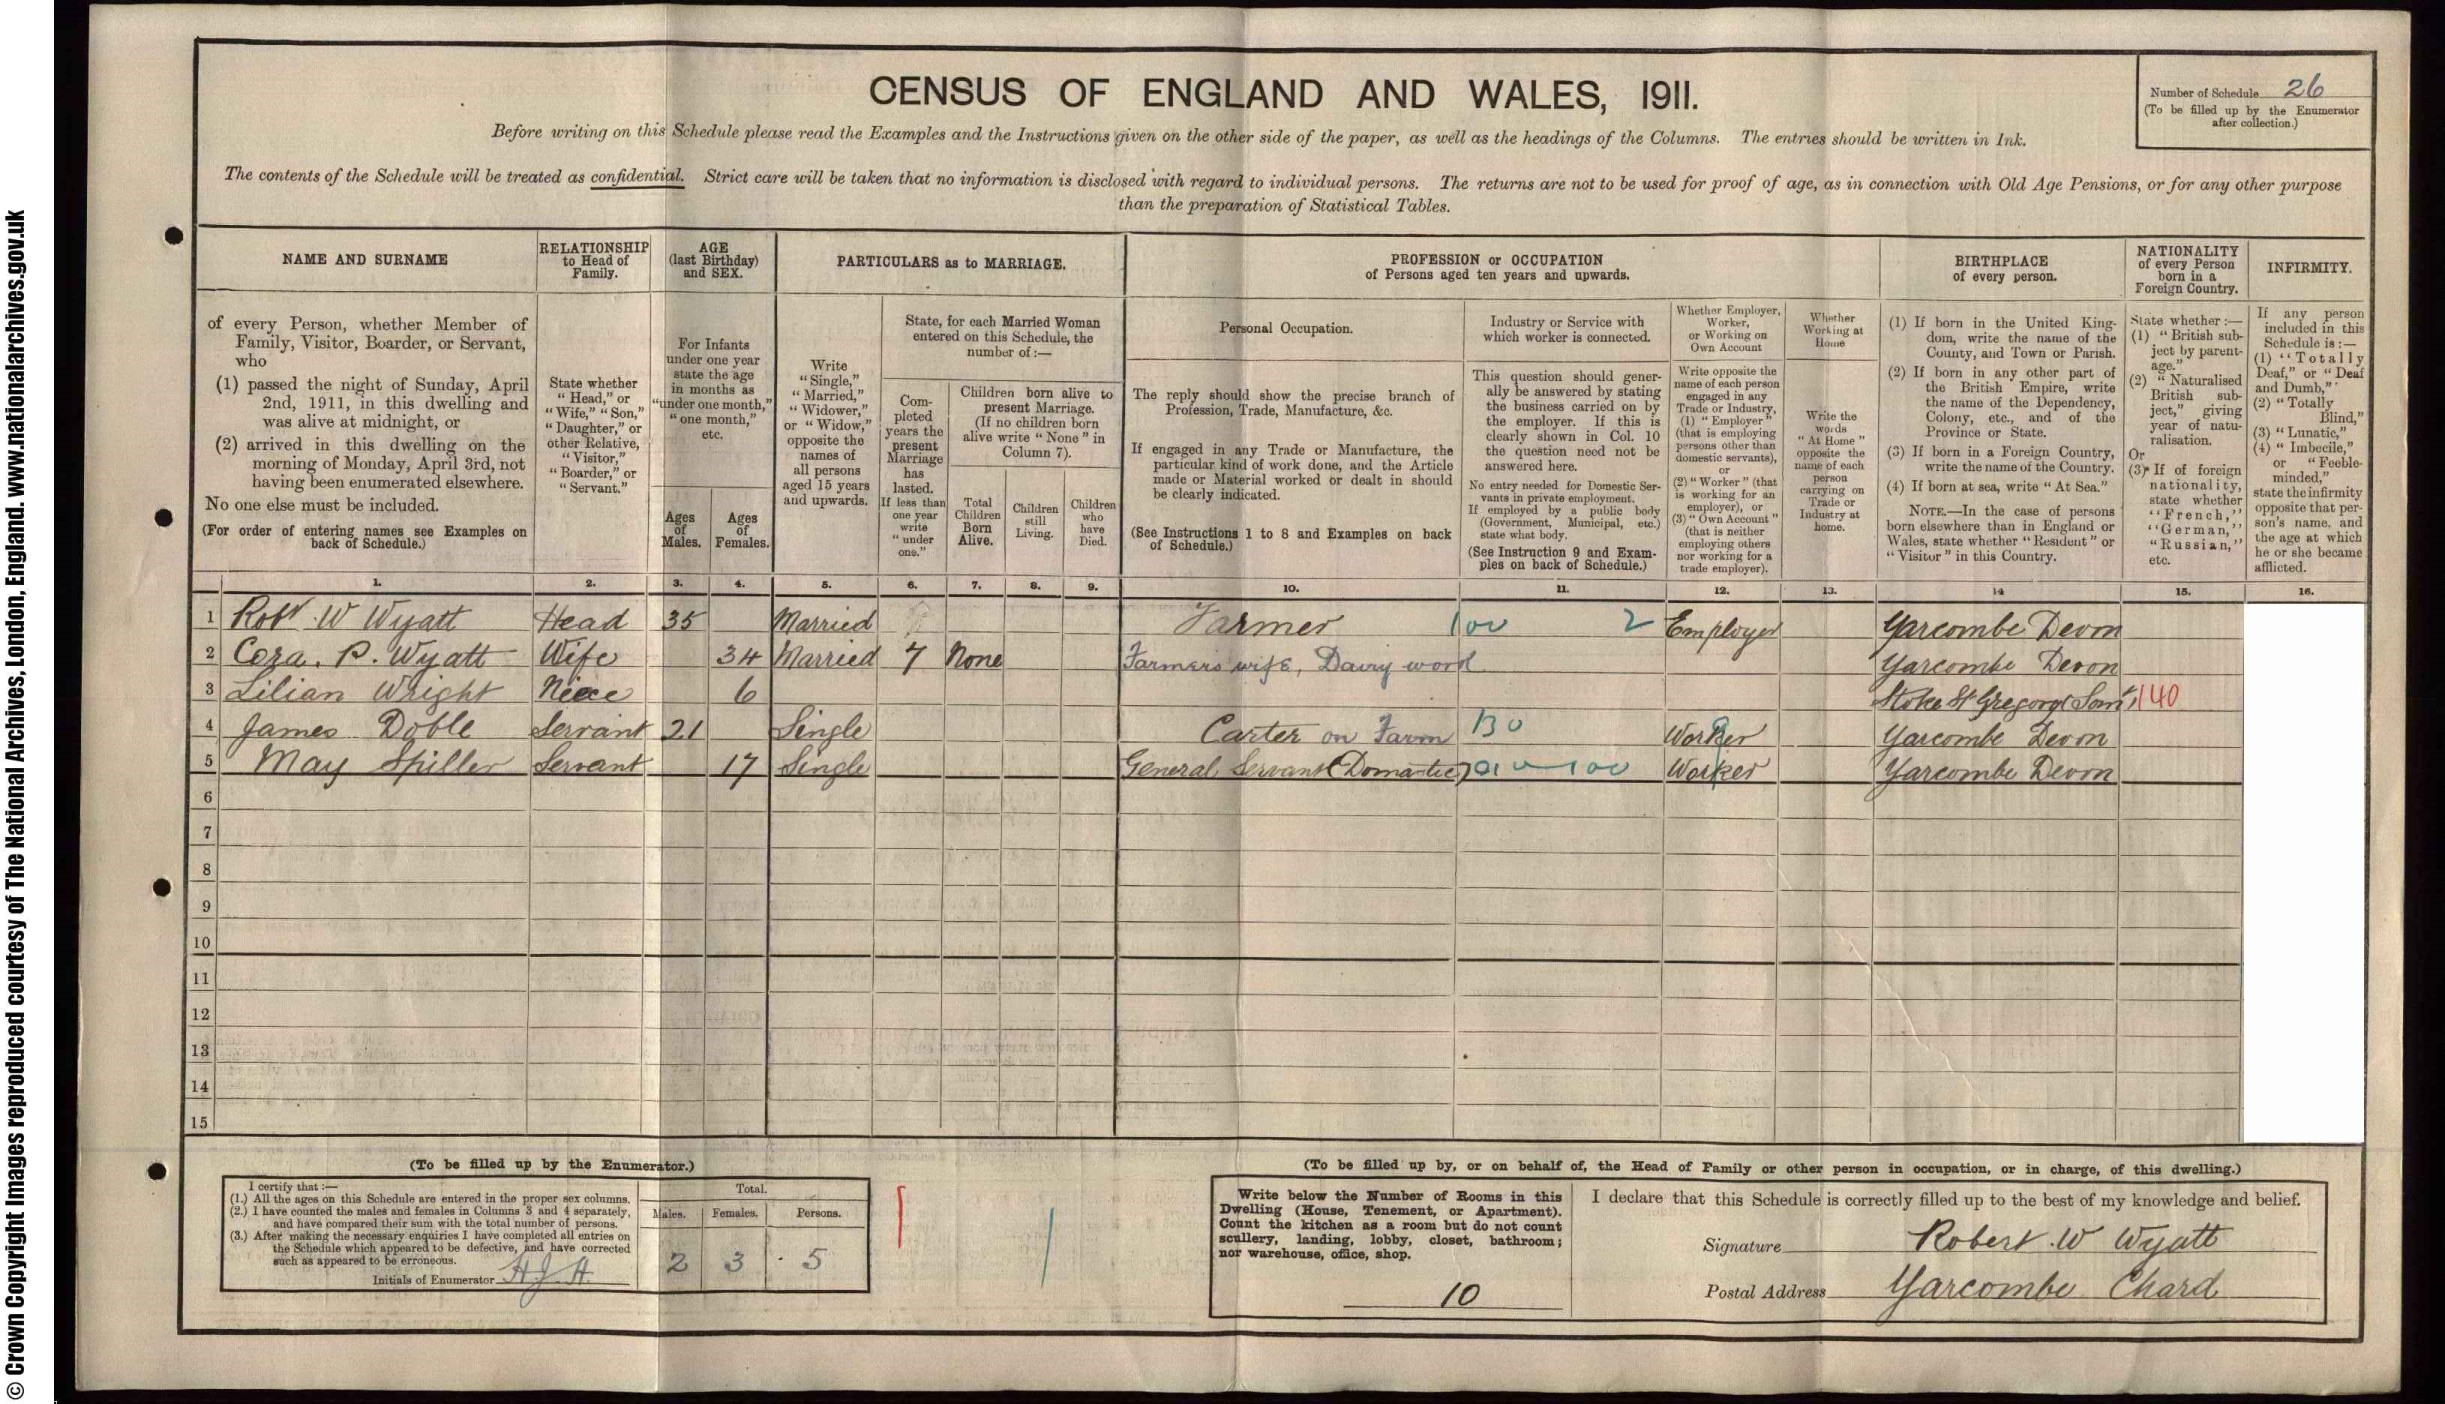 © Crown Copyright Images reproduced courtesy of The National Archives, London, England. www.nationalarchives.gov.uk
CENSUS OF ENGLAND AND WALES, 1911.
Number of Schedule 26
(To be filled up by the Enumerator
after collection.)
Before writing on this Schedule please read the Examples and the Instructions given on the other side of the paper, as well as the headings of the Columns. The entries should be written in Ink.
The contents of the Schedule will be treated as confidential. Strict care will be taken that no information is disclosed with regard to individual persons. The returns are not to be used for proof of age, as in connection with Old Age Pensions, or for any other purpose
than the preparation of Statistical Tables.
NAME AND SURNAME
of every Person, whether Member of
Family, Visitor, Boarder, or Servant,
who
(1) passed the night of Sunday, April
2nd, 1911, in this dwelling and
was alive at midnight, or
(2) arrived in this dwelling on the
morning of Monday, April 3rd, not
having been enumerated elsewhere.
No one else must be included.
(For order of entering names see Examples on
back of Schedule.)
RELATIONSHIP
to Head of
Family.
State whether
"Head," or
"Wife," "Son,"
"Daughter," or
other Relative,
"Visitor,"
"Boarder," or
"Servant."
AGE
(last Birthday)
and SEX.
For Infants
under one year
state the age
in months as
"under one month,"
"one month,"
etc.
Ages
of
Males.
Ages
of
Females.
PARTICULARS as to MARRIAGE.
Write
"Single,"
"Married,"
"Widower,"
or "Widow,"
opposite the
names of
all persons
aged 15 years
and upwards.
State, for each Married Woman
entered on this Schedule, the
number of :—
Com-
pleted
years the
present
Marriage
has
lasted.
If less than
one year
write
"under
one."
Children born alive to
present Marriage.
(If no children born
alive write "None" in
Column 7).
Total
Children
Born
Alive.
Children
still
Living.
Children
who
have
Died.
PROFESSION or OCCUPATION
of Persons aged ten years and upwards.
Personal Occupation.
The reply should show the precise branch of
Profession, Trade, Manufacture, &c.
If engaged in any Trade or Manufacture, the
particular kind of work done, and the Article
made or Material worked or dealt in should
be clearly indicated.
(See Instructions 1 to 8 and Examples on back
of Schedule.)
Industry or Service with
which worker is connected.
This question should gener-
ally be answered by stating
the business carried on by
the employer. If this is
clearly shown in Col. 10
the question need not be
answered here.
No entry needed for Domestic Ser-
vants in private employment.
If employed by a public body
(Government, Municipal, etc.)
state what body.
(See Instruction 9 and Exam-
ples on back of Schedule.)
Whether Employer,
Worker,
or Working on
Own Account
Write opposite the
name of each person
engaged in any
Trade or Industry,
(1) "Employer"
(that is employing
persons other than
domestic servants),
or
(2) "Worker" (that
is working for an
employer), or
(3) "Own Account"
(that is neither
employing others
nor working for a
trade employer).
Whether
Working at
Home
Write the
words
"At Home"
opposite the
name of each
person
carrying on
Trade or
Industry at
home.
BIRTHPLACE
of every person.
(1) If born in the United King-
dom, write the name of the
County, and Town or Parish.
(2) If born in any other part of
the British Empire, write
the name of the Dependency,
Colony, etc., and of the
Province or State.
(3) If born in a Foreign Country,
write the name of the Country.
(4) If born at sea, write "At Sea."
NOTE.—In the case of persons
born elsewhere than in England or
Wales, state whether "Resident" or
"Visitor" in this Country.
NATIONALITY
of every Person
born in a
Foreign Country.
State whether :—
(1) "British sub-
ject by parent-
age."
(2) "Naturalised
British sub-
ject," giving
year of natu-
ralisation.
Or
(3) If of foreign
nationality,
state whether
"French,"
"German,"
"Russian,"
etc.
INFIRMITY.
If any person
included in this
Schedule is :—
(1) "Totally
Deaf," or "Deaf
and Dumb,"
(2) "Totally
Blind,"
(3) "Lunatic,"
(4) "Imbecile,"
or "Feeble-
minded,"
state the infirmity
opposite that per-
son's name, and
the age at which
he or she became
afflicted.
1. 2. 3. 4. 5. 6. 7. 8. 9. 10. 11. 12. 13. 14 15. 16.
1 Robt W Wyatt Head 35 Married Farmer 100 2 Employer Yarcombe Devon
2 Cora. P. Wyatt Wife 34 Married 7 None Farmers wife, Dairy work Yarcombe Devon
3 Lilian Wright Niece 6 Stoke St Gregory Somt 140
4 James Doble Servant 21 Single Carter on Farm 130 Worker Yarcombe Devon
5 May Spiller Servant 17 Single General Servant (Domestic) Worker Yarcombe Devon
6
7
8
9
10
11
12
13
14
15
(To be filled up by the Enumerator.)
I certify that :—
(1.) All the ages on this Schedule are entered in the proper sex columns.
(2.) I have counted the males and females in Columns 3 and 4 separately,
and have compared their sum with the total number of persons.
(3.) After making the necessary enquiries I have completed all entries on
the Schedule which appeared to be defective, and have corrected
such as appeared to be erroneous.
Initials of Enumerator H J H
Total.
Males. Females. Persons.
2 3 5
(To be filled up by, or on behalf of, the Head of Family or other person in occupation, or in charge, of this dwelling.)
Write below the Number of Rooms in this
Dwelling (House, Tenement, or Apartment).
Count the kitchen as a room but do not count
scullery, landing, lobby, closet, bathroom;
nor warehouse, office, shop.
10
I declare that this Schedule is correctly filled up to the best of my knowledge and belief.
Signature Robert W Wyatt
Postal Address Yarcombe Chard